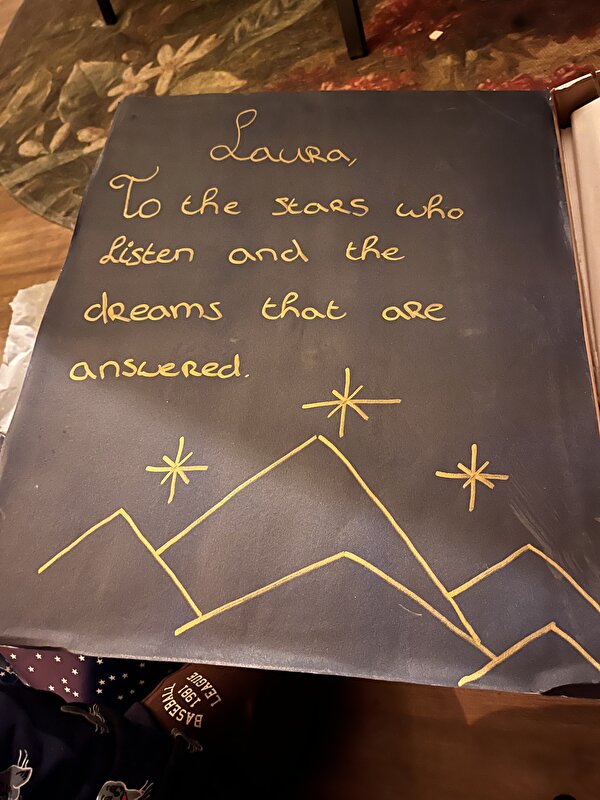 Laura,
To the stars who
listen and the
dreams that are
answered.
BASEBALL
1981
LEAGUE